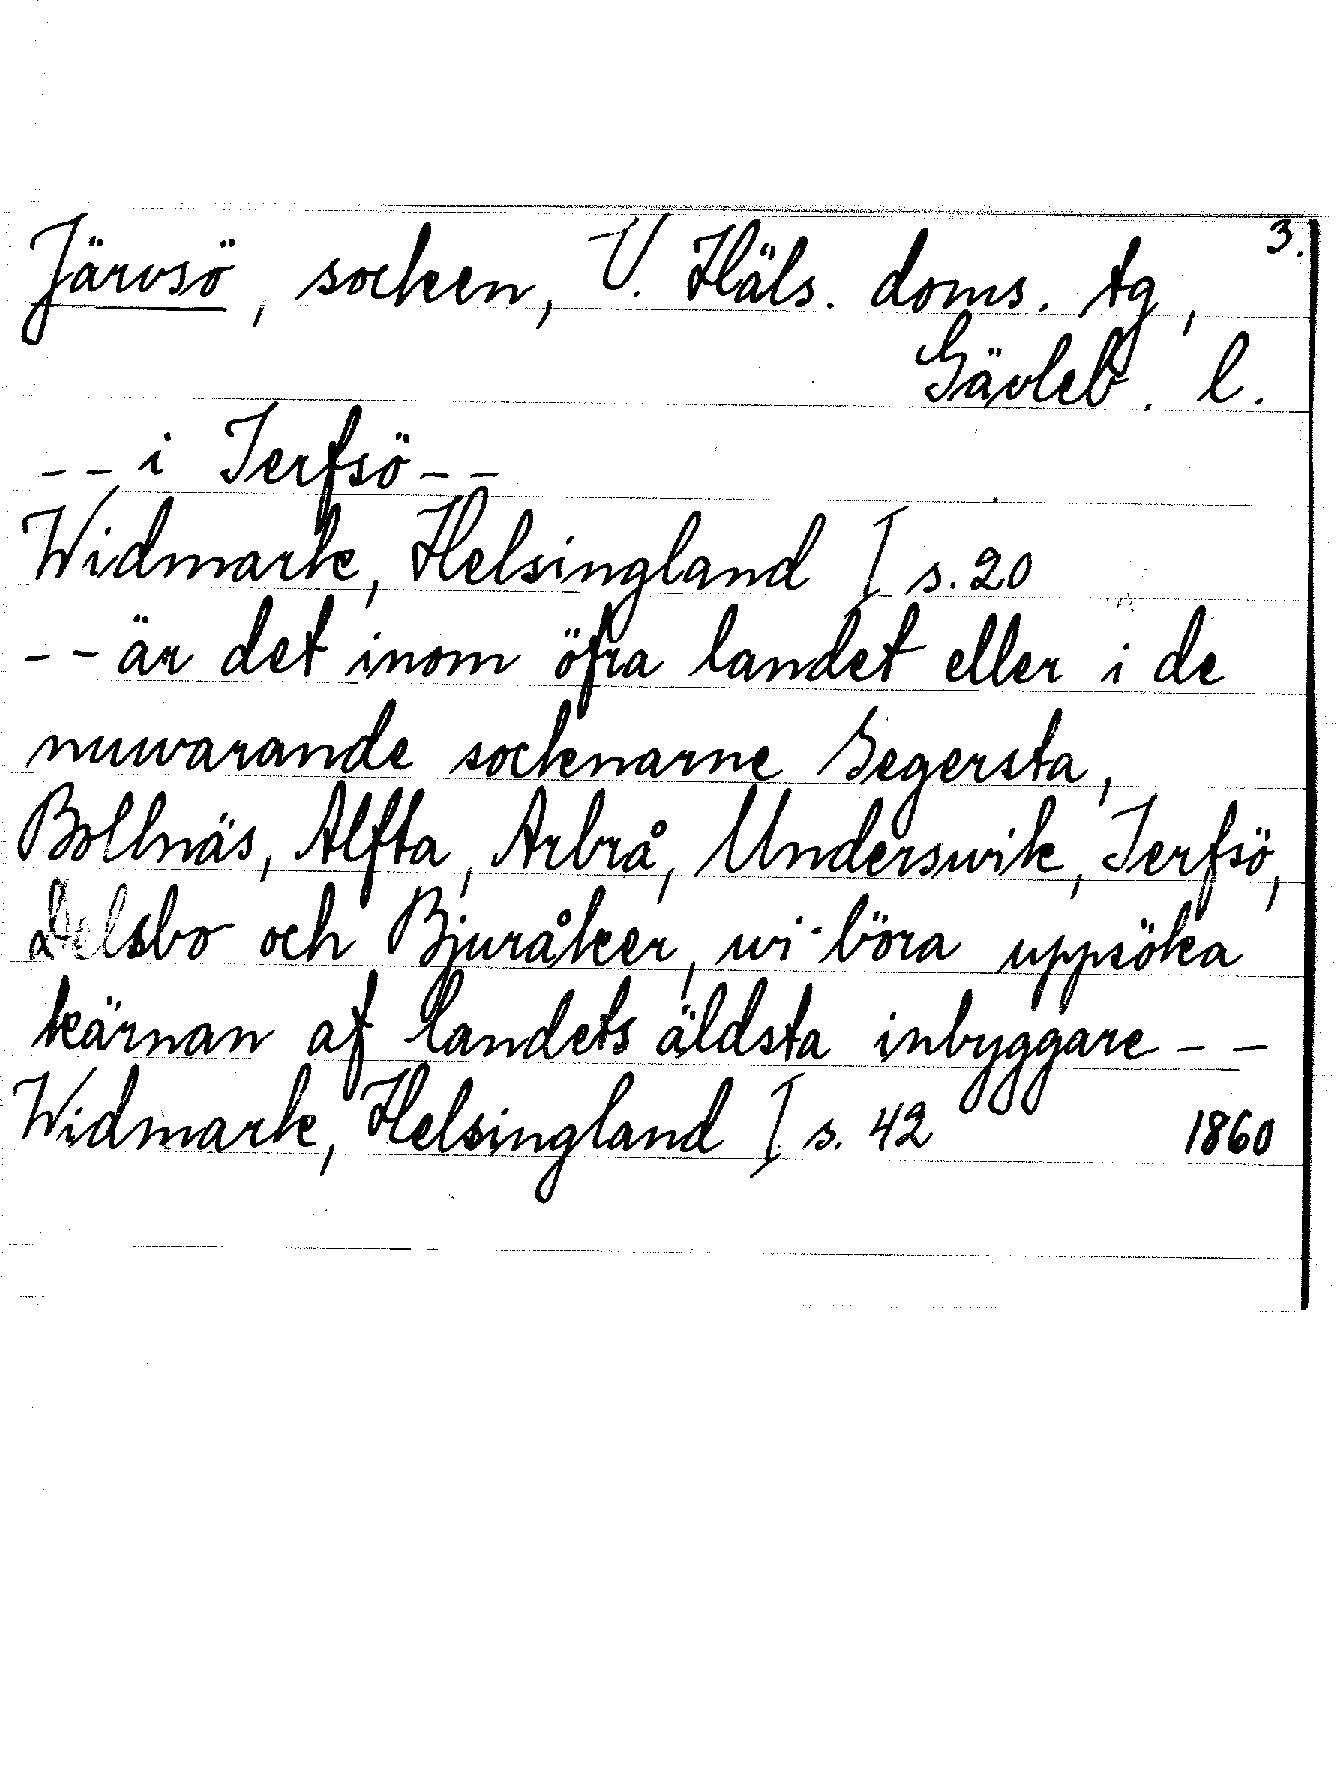 3.
Järvsö, socken, V. Häls. doms. tg,
Gävleb. l.
-- i Jerfsö --
Widmark, Helsingland I s. 20
-- är det inom öfra landet eller i de
nuvarande socknarne Segersta,
Bollnäs, Alfta, Arbrå, Underswik, Jerfsö,
Delsbo och Bjuråker, wi böra uppsöka
kärnan af landets äldsta inbyggare --
Widmark, Helsingland I s. 42 1860